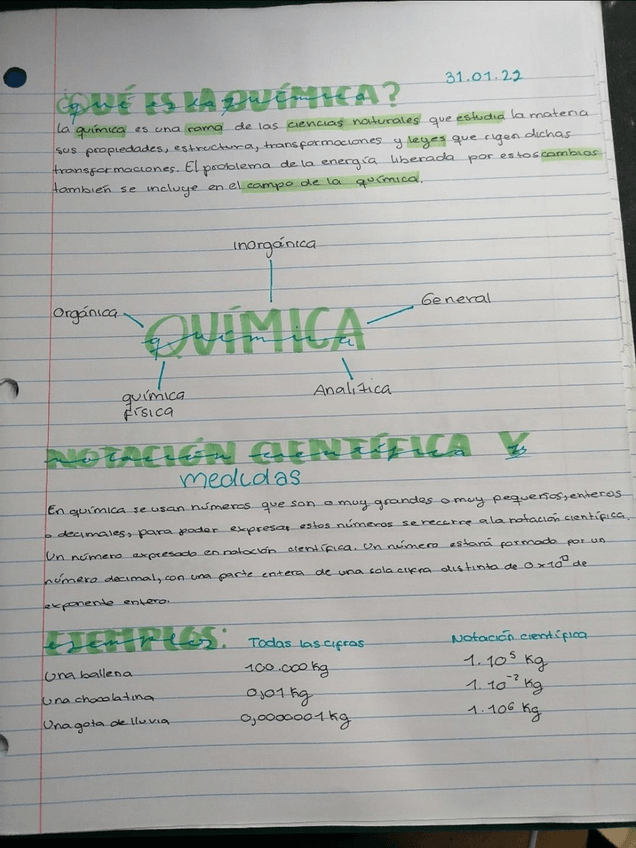 31.01.22
¿QUÉ ES LA QUÍMICA?
La química es una rama de las ciencias naturales que estudia la materia
sus propiedades, estructura, transformaciones y leyes que rigen dichas
transformaciones. El problema de la energía liberada por estos cambios
también se incluye en el campo de la química.
Inorgánica
Orgánica
General
QUÍMICA
química
física
Analítica
NOTACIÓN CIENTÍFICA Y
medidas
En química se usan números que son o muy grandes o muy pequeños, enteros
o decimales, para poder expresar estos números se recurre a la notación científica.
Un número expresado en notación científica. Un número estará formado por un
número decimal, con una parte entera de una sola cifra distinta de 0 x 10 de
exponente entero.
EJEMPLOS: Todas las cifras Notación científica
Una ballena 100.000 kg 1.10⁵ Kg
Una chocolatina 0,01 kg 1.10⁻² Kg
Una gota de lluvia 0,0000001 kg 1.10⁶ Kg